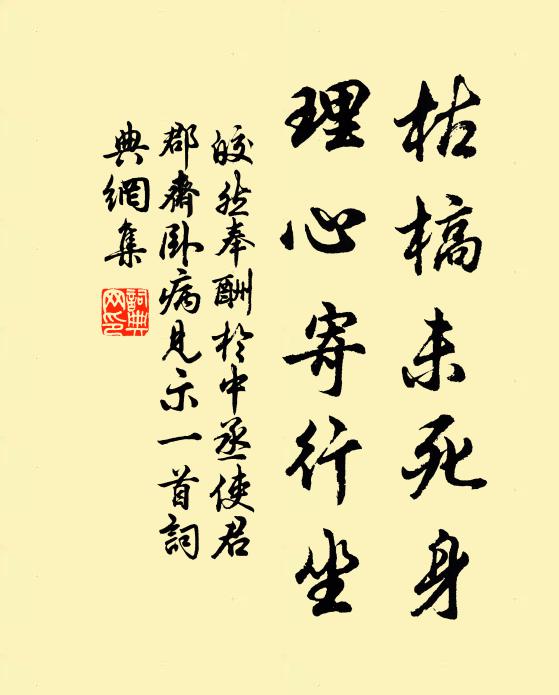 枯槁未死身
理心寄行坐
皎然奉酬於中丞使君
郡齋卧病見示一首詞
典網集
詞典
网印